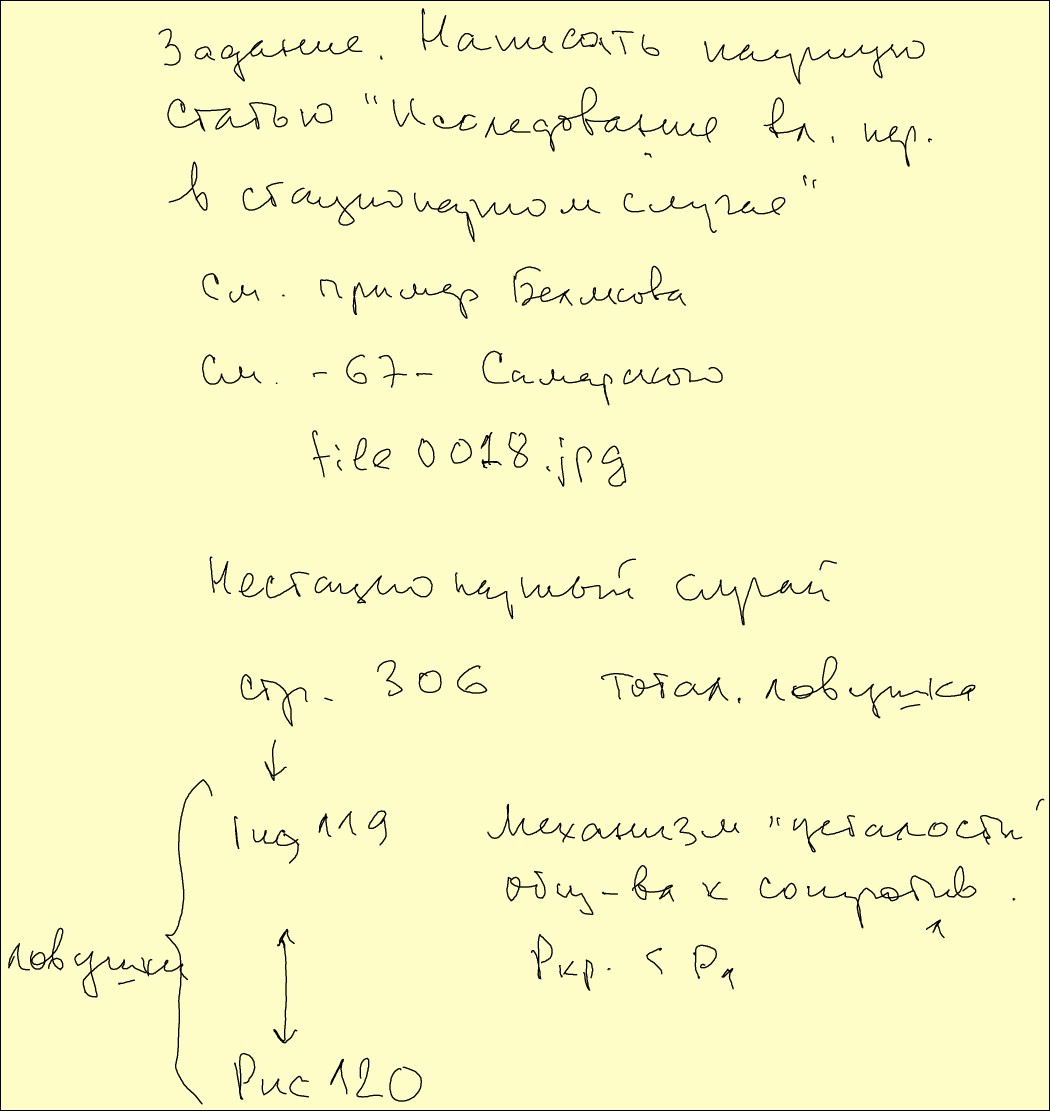 Задание. Написать научную
статью "Исследование вл. пер.
в стационарном случае"
см. пример
см. -67- Самарского
file 0018.jpg
Нестационарный случай
стр. 306 тотал. ловушка
119 Механизм "усталости"
общ-ва к сопротив.
ловушки
Ркр. < Р1
Рис 120